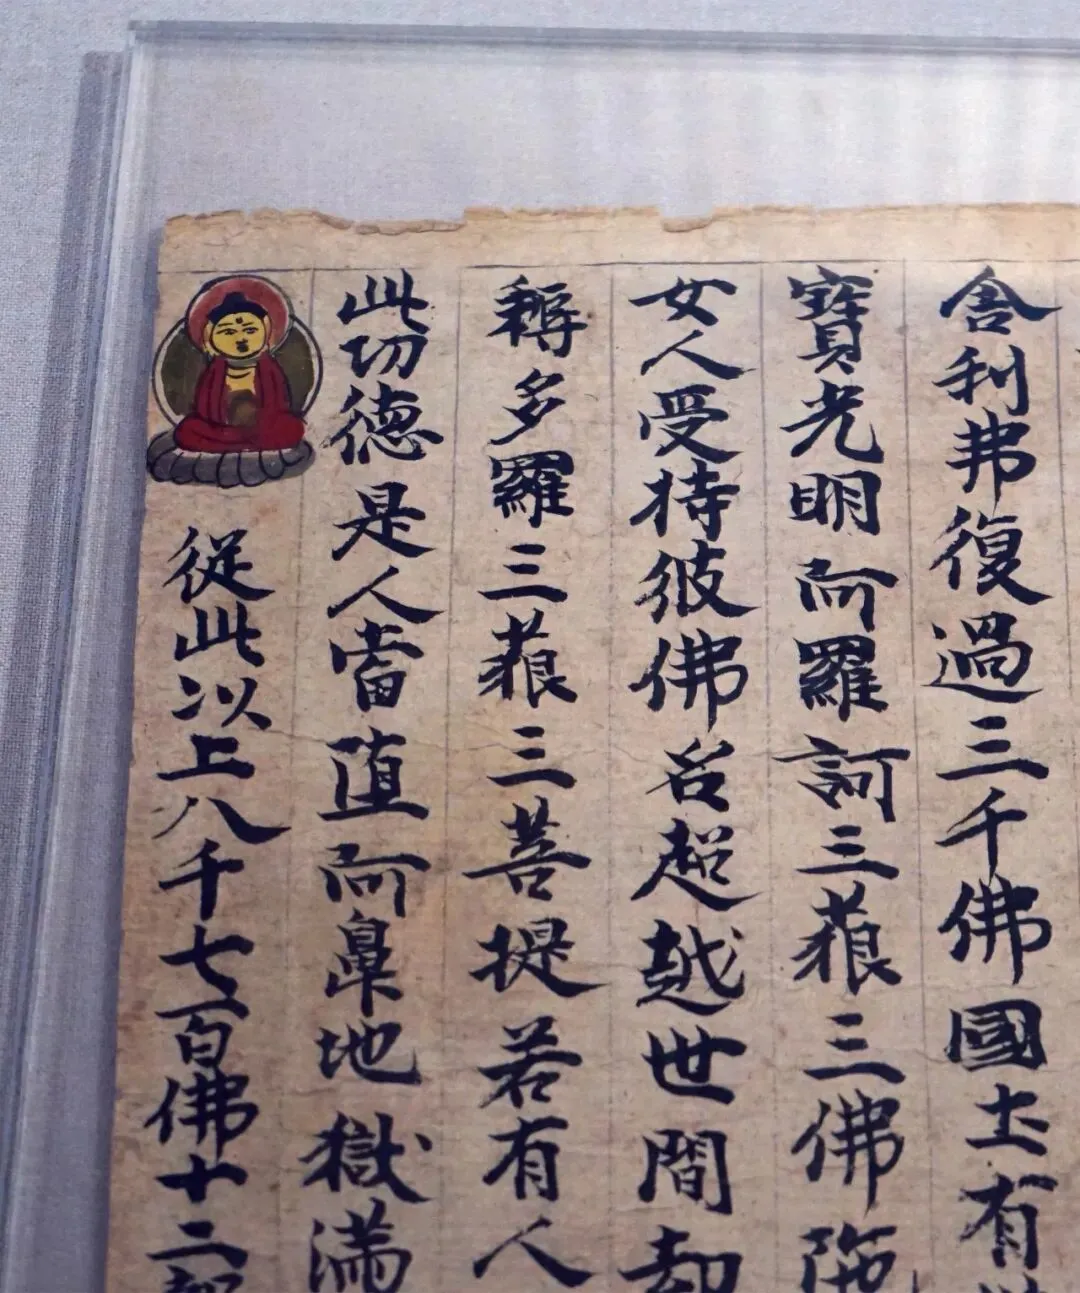 舍利弗復過三千佛國土有
寶光明阿羅訶三藐三佛陁
女人受持彼佛名超越世間劫
耨多羅三藐三菩提若有人
此功德是人當墮阿鼻地獄滿
從此以上八千七百佛十二部